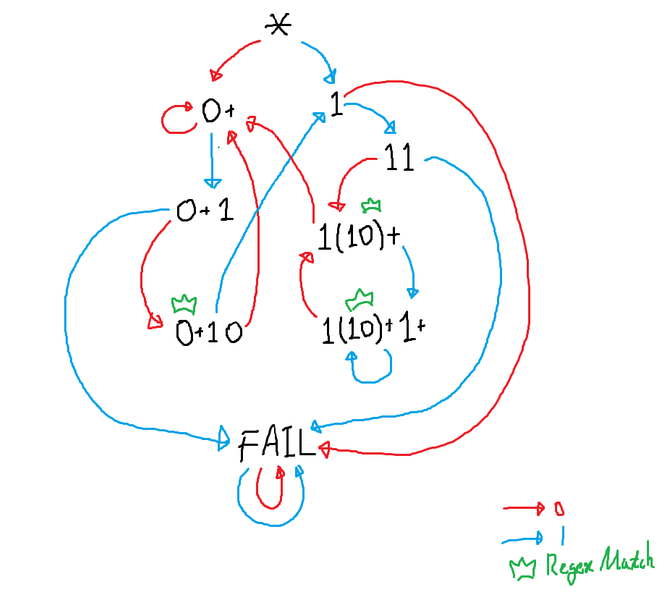 *
0+
1
11
0+1
1(10)+
0+10
1(10)+1+
FAIL
0
1
Regex Match